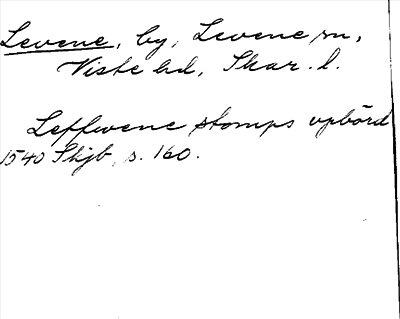 Levene, by, Levene sn,
Viste hd, Skar. l.
Leffwene stomps upbörd
1540 Skjb, s. 160.